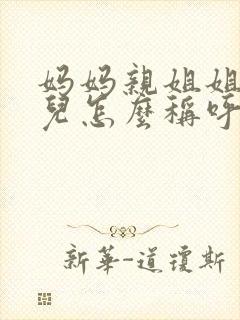 妈妈親姐姐
兒怎麼稱呼
新華-道瓊斯